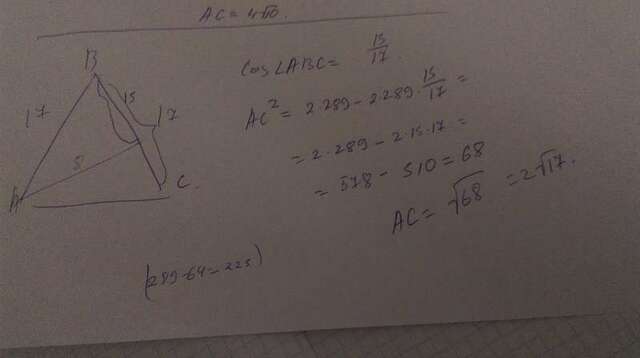 AC = 4√10.
B
17
15
17
8
A
C.
cos∠ABC = 15/17
AC² = 2·289 - 2·289·15/17 =
= 2·289 - 2·15·17 =
= 578 - 510 = 68
AC = √68 = 2√17.
(289-64=225)